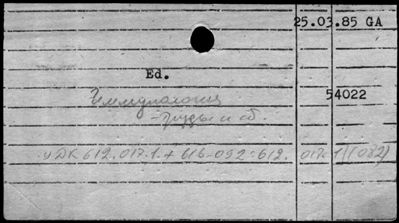 25.03.85 GA
Ed.
Иммунология 54022
- труды и сб.
УДК 612.017.1.+ 616-092:612. 017.1(082)